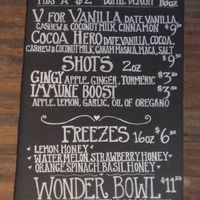 16oz
V FOR VANILLA DATE, VANILLA,
CASHEW & COCONUT MILK, CINNAMON $9
COCOA HERO DATE, VANILLA, COCOA,
CASHEW & COCONUT MILK, GARAM MASALA, MACA, SALT $9.50
SHOTS 2oz
GINGY APPLE, GINGER, TURMERIC $3.50
IMMUNE BOOST $3.50
APPLE, LEMON, GARLIC, OIL OF OREGANO
FREEZES 16oz $6.50
LEMON HONEY
WATERMELON STRAWBERRY HONEY
ORANGE SPINACH BASIL HONEY
WONDER BOWL $11.50